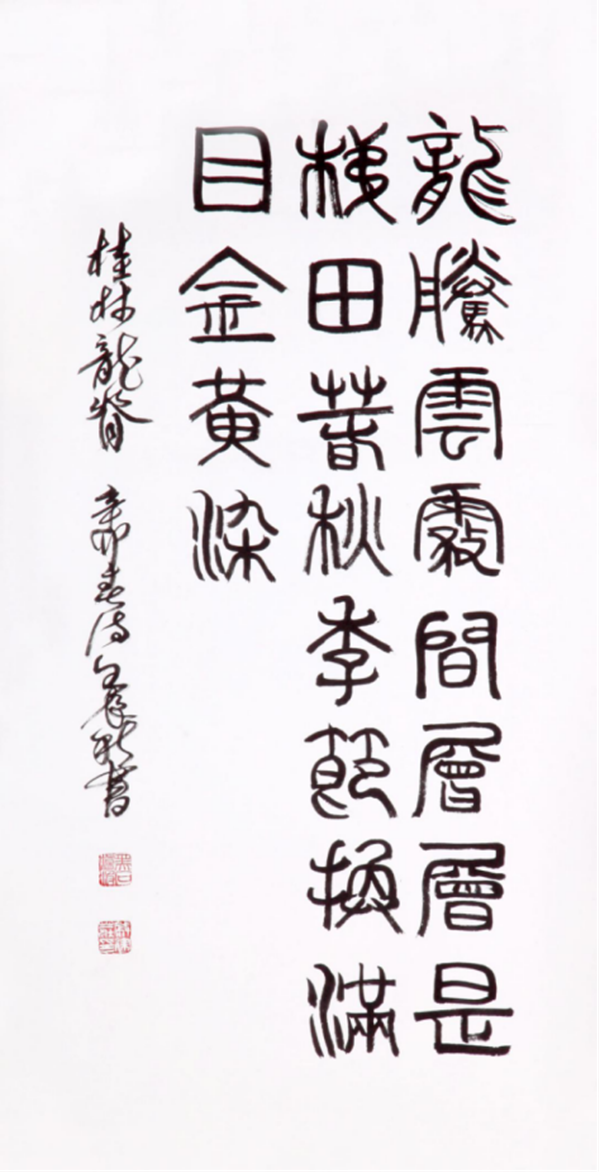 龍騰雲霧間層層是
梯田春秋季節換滿
目金黃染
桂林龍脊 辛卯春 書